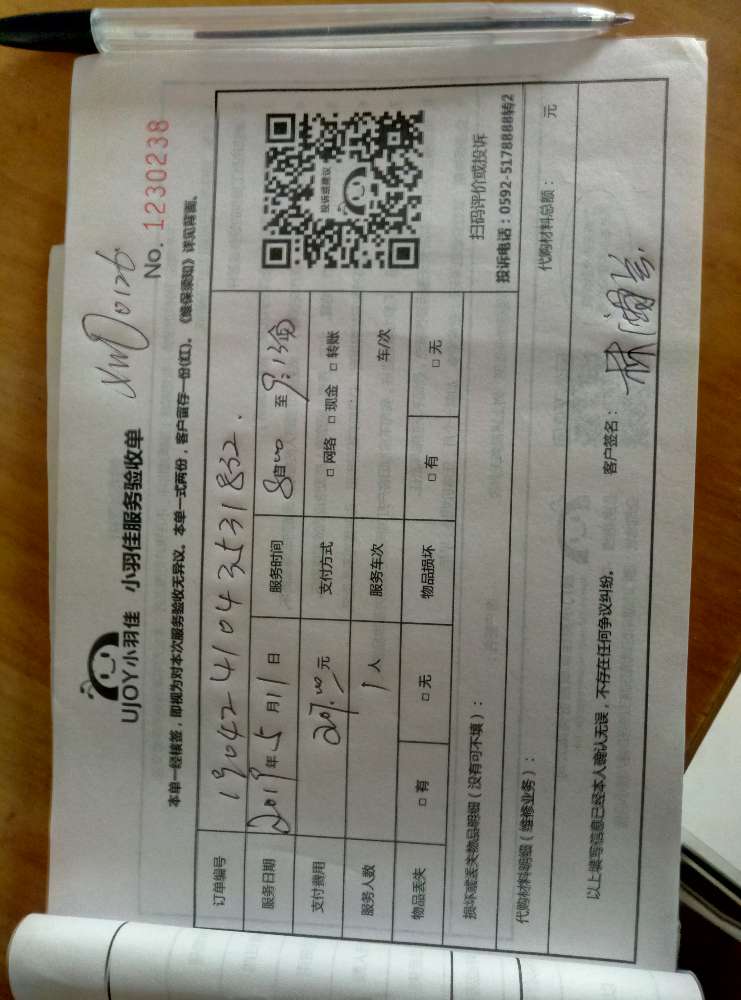 UJOY小羽佳 小羽佳服务验收单
No. 1230238
本单一经核签，即视为对本次服务验收无异议。本单一式两份，客户留存一份(红)。《维保须知》详见背面。
订单编号 1904241043531832.
服务日期 2019年5月11日 服务时间 8自00 至 9:15
支付费用 207.00元 支付方式 □ 网络 □ 现金 □ 转账
服务人数 1人 服务车次 车/次
物品丢失 □ 有 □ 无 物品损坏 □ 有 □ 无
投诉或建议
扫码评价或投诉
投诉电话：0592-5178888转2
损坏或丢失物品明细（没有可不填）：
代购材料明细（维修业务）： 代购材料总额： 元
以上填写信息已经本人确认无误，不存在任何争议纠纷。 客户签名： 林